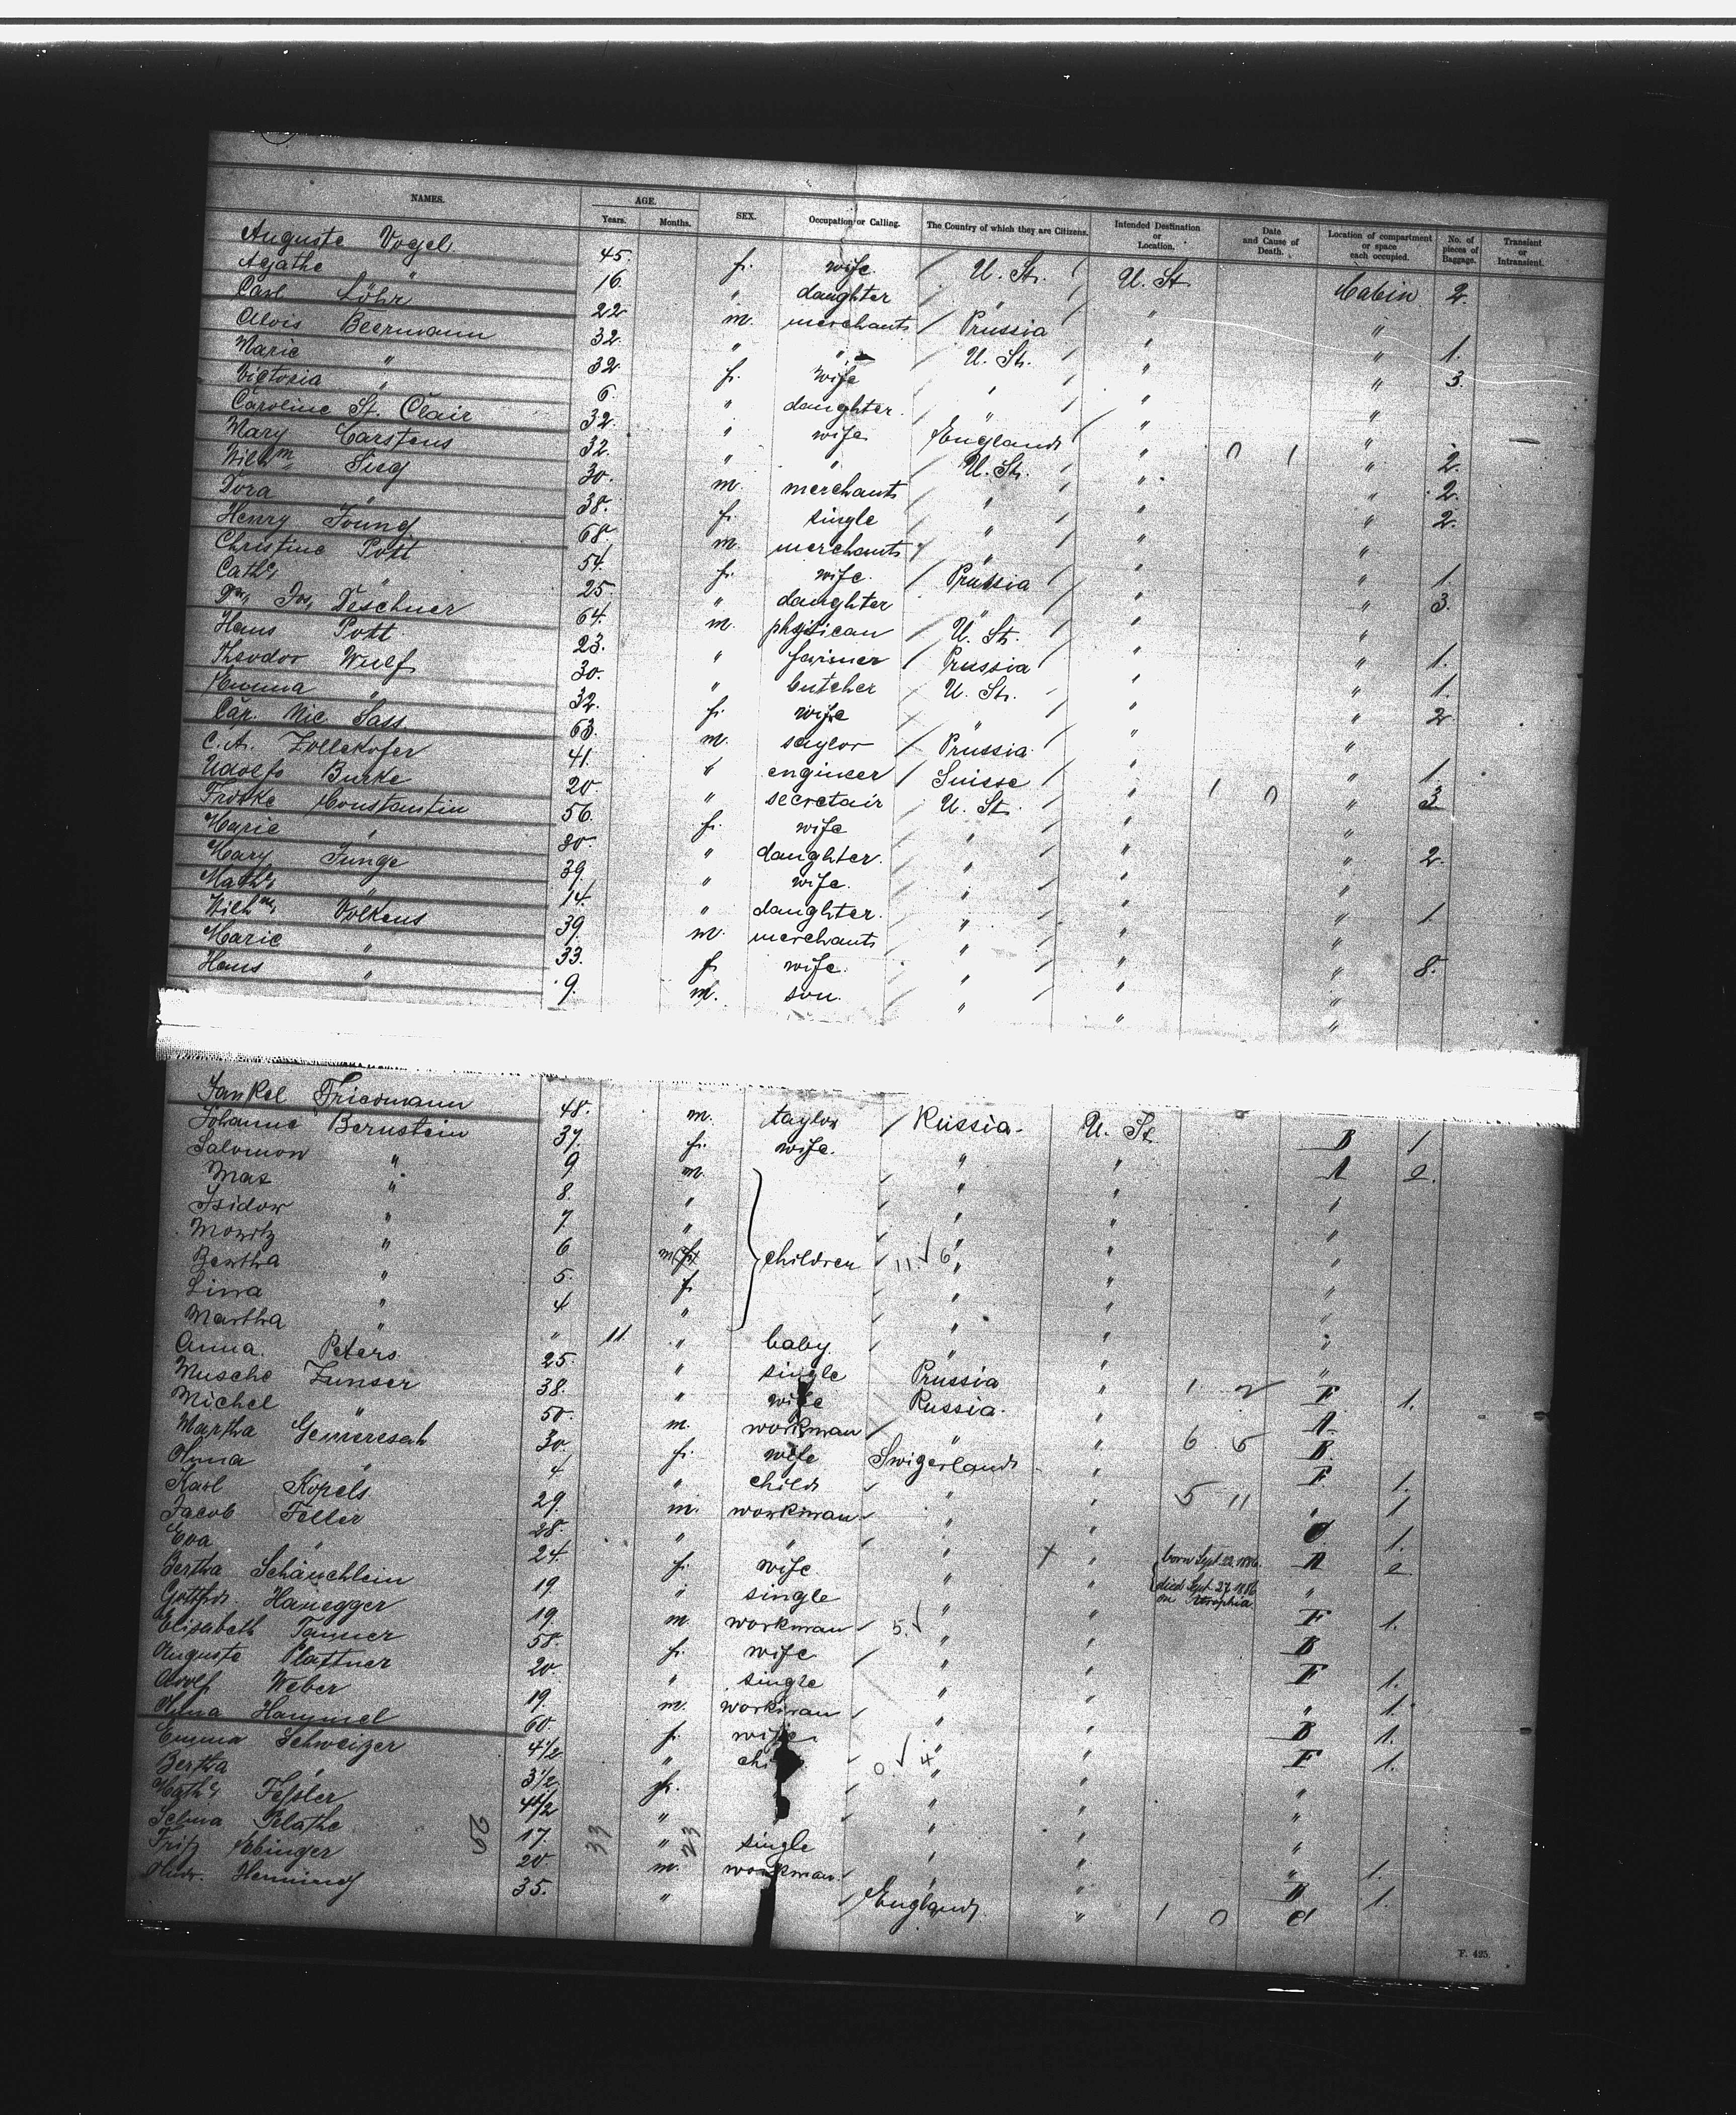 NAMES. AGE. Years. Months. SEX. Occupation or Calling. The Country of which they are Citizens. Intended Destination or Location. Date and Cause of Death. Location of compartment or space each occupied. No. of pieces of Baggage. Transient or Intransient.
Auguste Vogel 45. f. wife. U. St. U. St Cabin 2.
Agathe " 16. " daughter " " "
Carl Löhr 22 m. merchant Prussia " " 1.
Alois Beermann 32. " " U. St. " " 3.
Marie " 32 f. wife " " "
Victoria " 6. " daughter. " " "
Caroline St. Clair 32. " wife England " 0 1 " 2.
Mary Carstens 32. " " U. St. " " 2.
Wilhm Sieg 30. m. merchant " " " 2.
Dora " 38. f. single " " "
Henry Young 68. m. merchant " " " 1.
Christine Pott 54. f. wife. Prussia " " 3.
Cath. " 25. " daughter " " "
Dr. Jos. Deschner 64. m. physican U. St. " " 1.
Hans Pott. 23. " farmer Prussia " " 1.
Theodor Wulf 30. " butcher U. St. " " 2
Emma " 32. f. wife " " "
Car. Nic Sass 63. m. saylor Prussia " " 1.
C. A. Zollikofer 41. " engineer Suisse " 1 0 " 3
Udolfo Burke 20 " secretair U. St. " "
Frokke Constantin 56. f. wife " " " 2.
Marie " 20. " daughter. " " "
Mary Junge 39. " wife. " " " 1.
Math. " 14. " daughter. " " "
Wilhm. Volkens 39. m. merchant " " " 8.
Marie " 33. f. wife. " " "
Hans " 9. m. son. " " "
Jankel Friedmann 48. m. taylor Russia. U. St B 1
Johanne Bernstein 37. f. wife. " " A 2.
Salomon " 9. m. " " "
Max " 8. " " " "
Isidor " 7. " " " "
Moritz " 6 m children 11. 6 " " "
Bertha " 5. f. " " "
Lina " 4 " " " "
Martha " " 11 " baby. " " "
Anna. Peters. 25. " single Prussia " 1. 2 F 1.
Musche Zunser 38. " wife Russia. " A.
Michel " 50. m. workman " " 6 5 B.
Martha 30. f. wife Swizerland " F. 1.
Anna " 4 " child " " 5 11 " 1
Karl Kopels. 29. m. workman " " C. 1.
Jacob Feller 28. " " " " born Sept. 22. 1886. A 2
Eva " 24. f. wife. " " died Sept. 27. 1886 "
Bertha Schäuchlein 19. " single " " on Atrophia. F 1.
Gottfr. Hanegger 19. m. workman 5. " " B
Elisabeth Tanner 58. f. wife " " F 1.
Auguste Plattner 20. " single " " " 1.
Adolf Weber 19. m. workman " " B 1.
Anna Hammel 60. f. wife. " " F 1.
Emma Schweizer 4½ " 0 4 " " "
Bertha " 3½ f. " " "
Math. Fessler 4½ " " " "
Selma Plathe. 17. " single " " " 1.
Fritz Ebinger 20. m. workman " " B 1.
Andr. Henning 35. " England. " 1 0 C
29 33 23
F. 425.